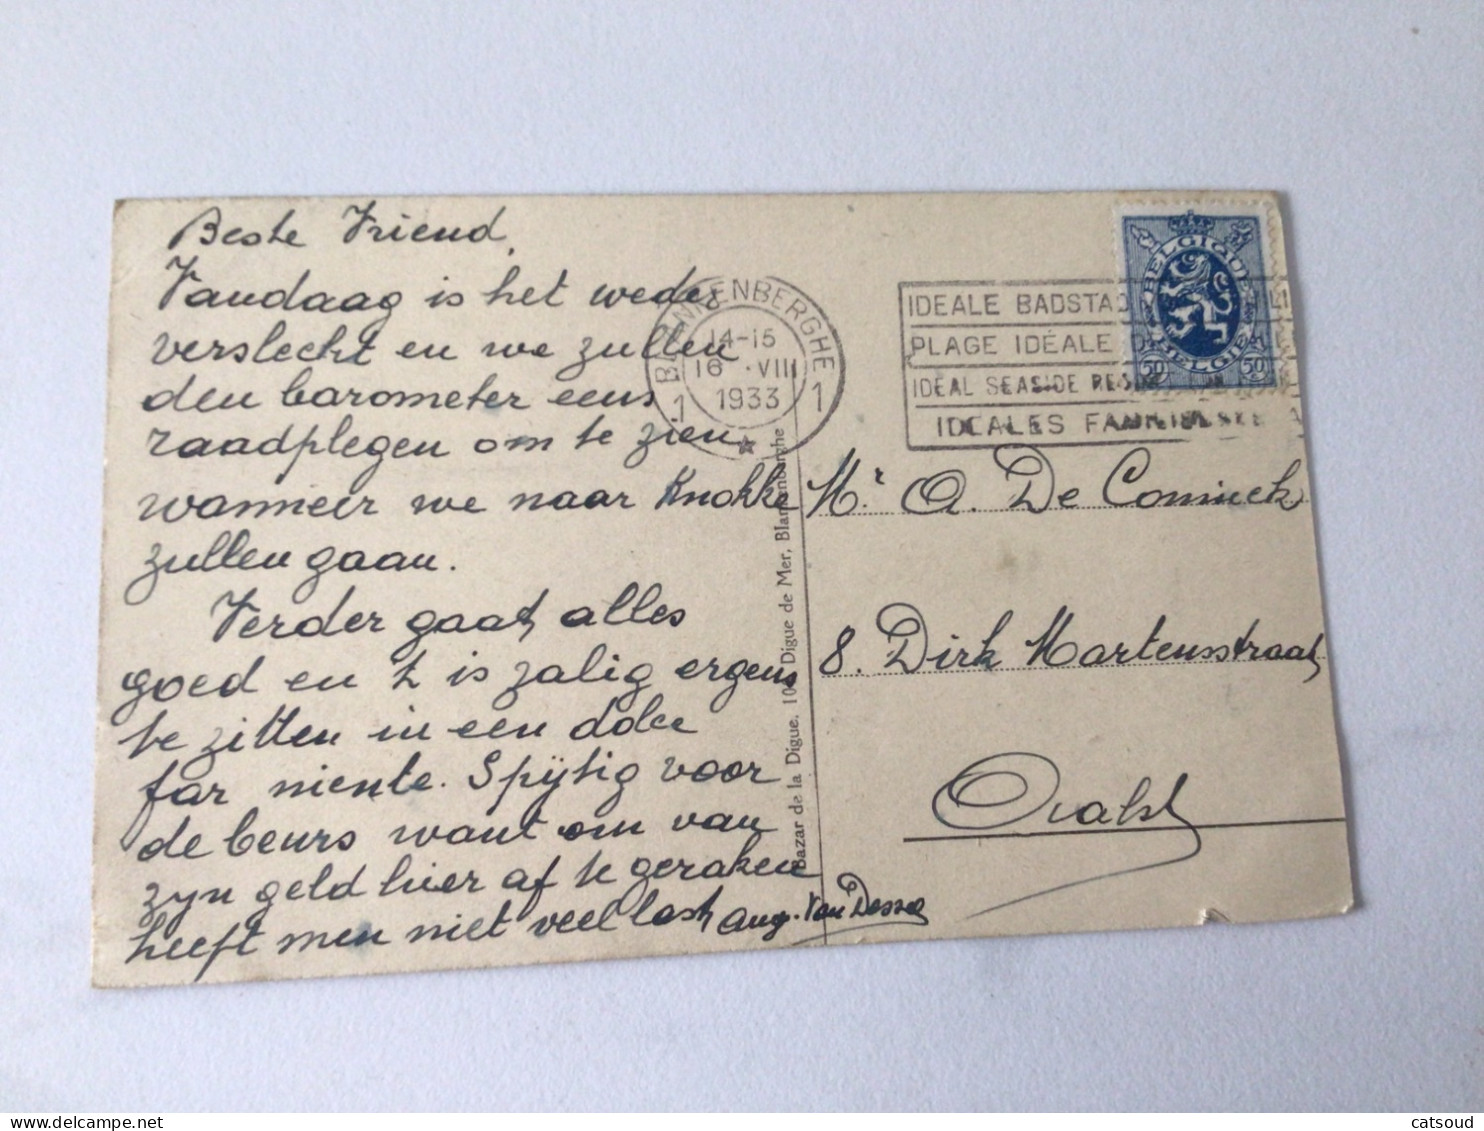 Beste Vriend,
Vandaag is het weder
verslecht en we zullen
den barometer eens
raadplegen om te zien
wanneer we naar Knokke
zullen gaan.
Verder gaat alles
goed en 't is zalig ergens
te zitten in een dolce
far niente. Spijtig voor
de beurs want om van
zyn geld hier af te geraken
heeft men niet veel last
Aug. Van Dessel
BLANKENBERGHE
1 1
14-15
16 · VIII
1933
IDEALE BADSTAD
PLAGE IDÉALE
IDEAL SEASIDE
IDEALES
BELGIQUE
BELGIË
50 50
Bazar de la Digue. 10 Digue de Mer, Blankenberghe
Mr A. De Coninck
8. Dirk Martensstraat
Aalst
www.delcampe.net
catsoud